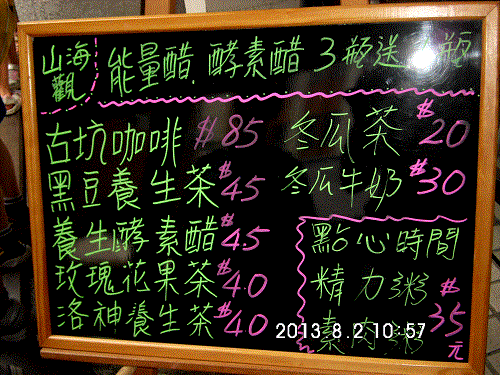 山海觀 能量醋.酵素醋 3瓶送 瓶
古坑咖啡 $85
黑豆養生茶 $45
養生酵素醋 $45
玫瑰花果茶 $40
洛神養生茶 $40
冬瓜茶 $20
冬瓜牛奶 $30
點心時間
精力粥
素肉粥 $35元
2013 8.2 10:57